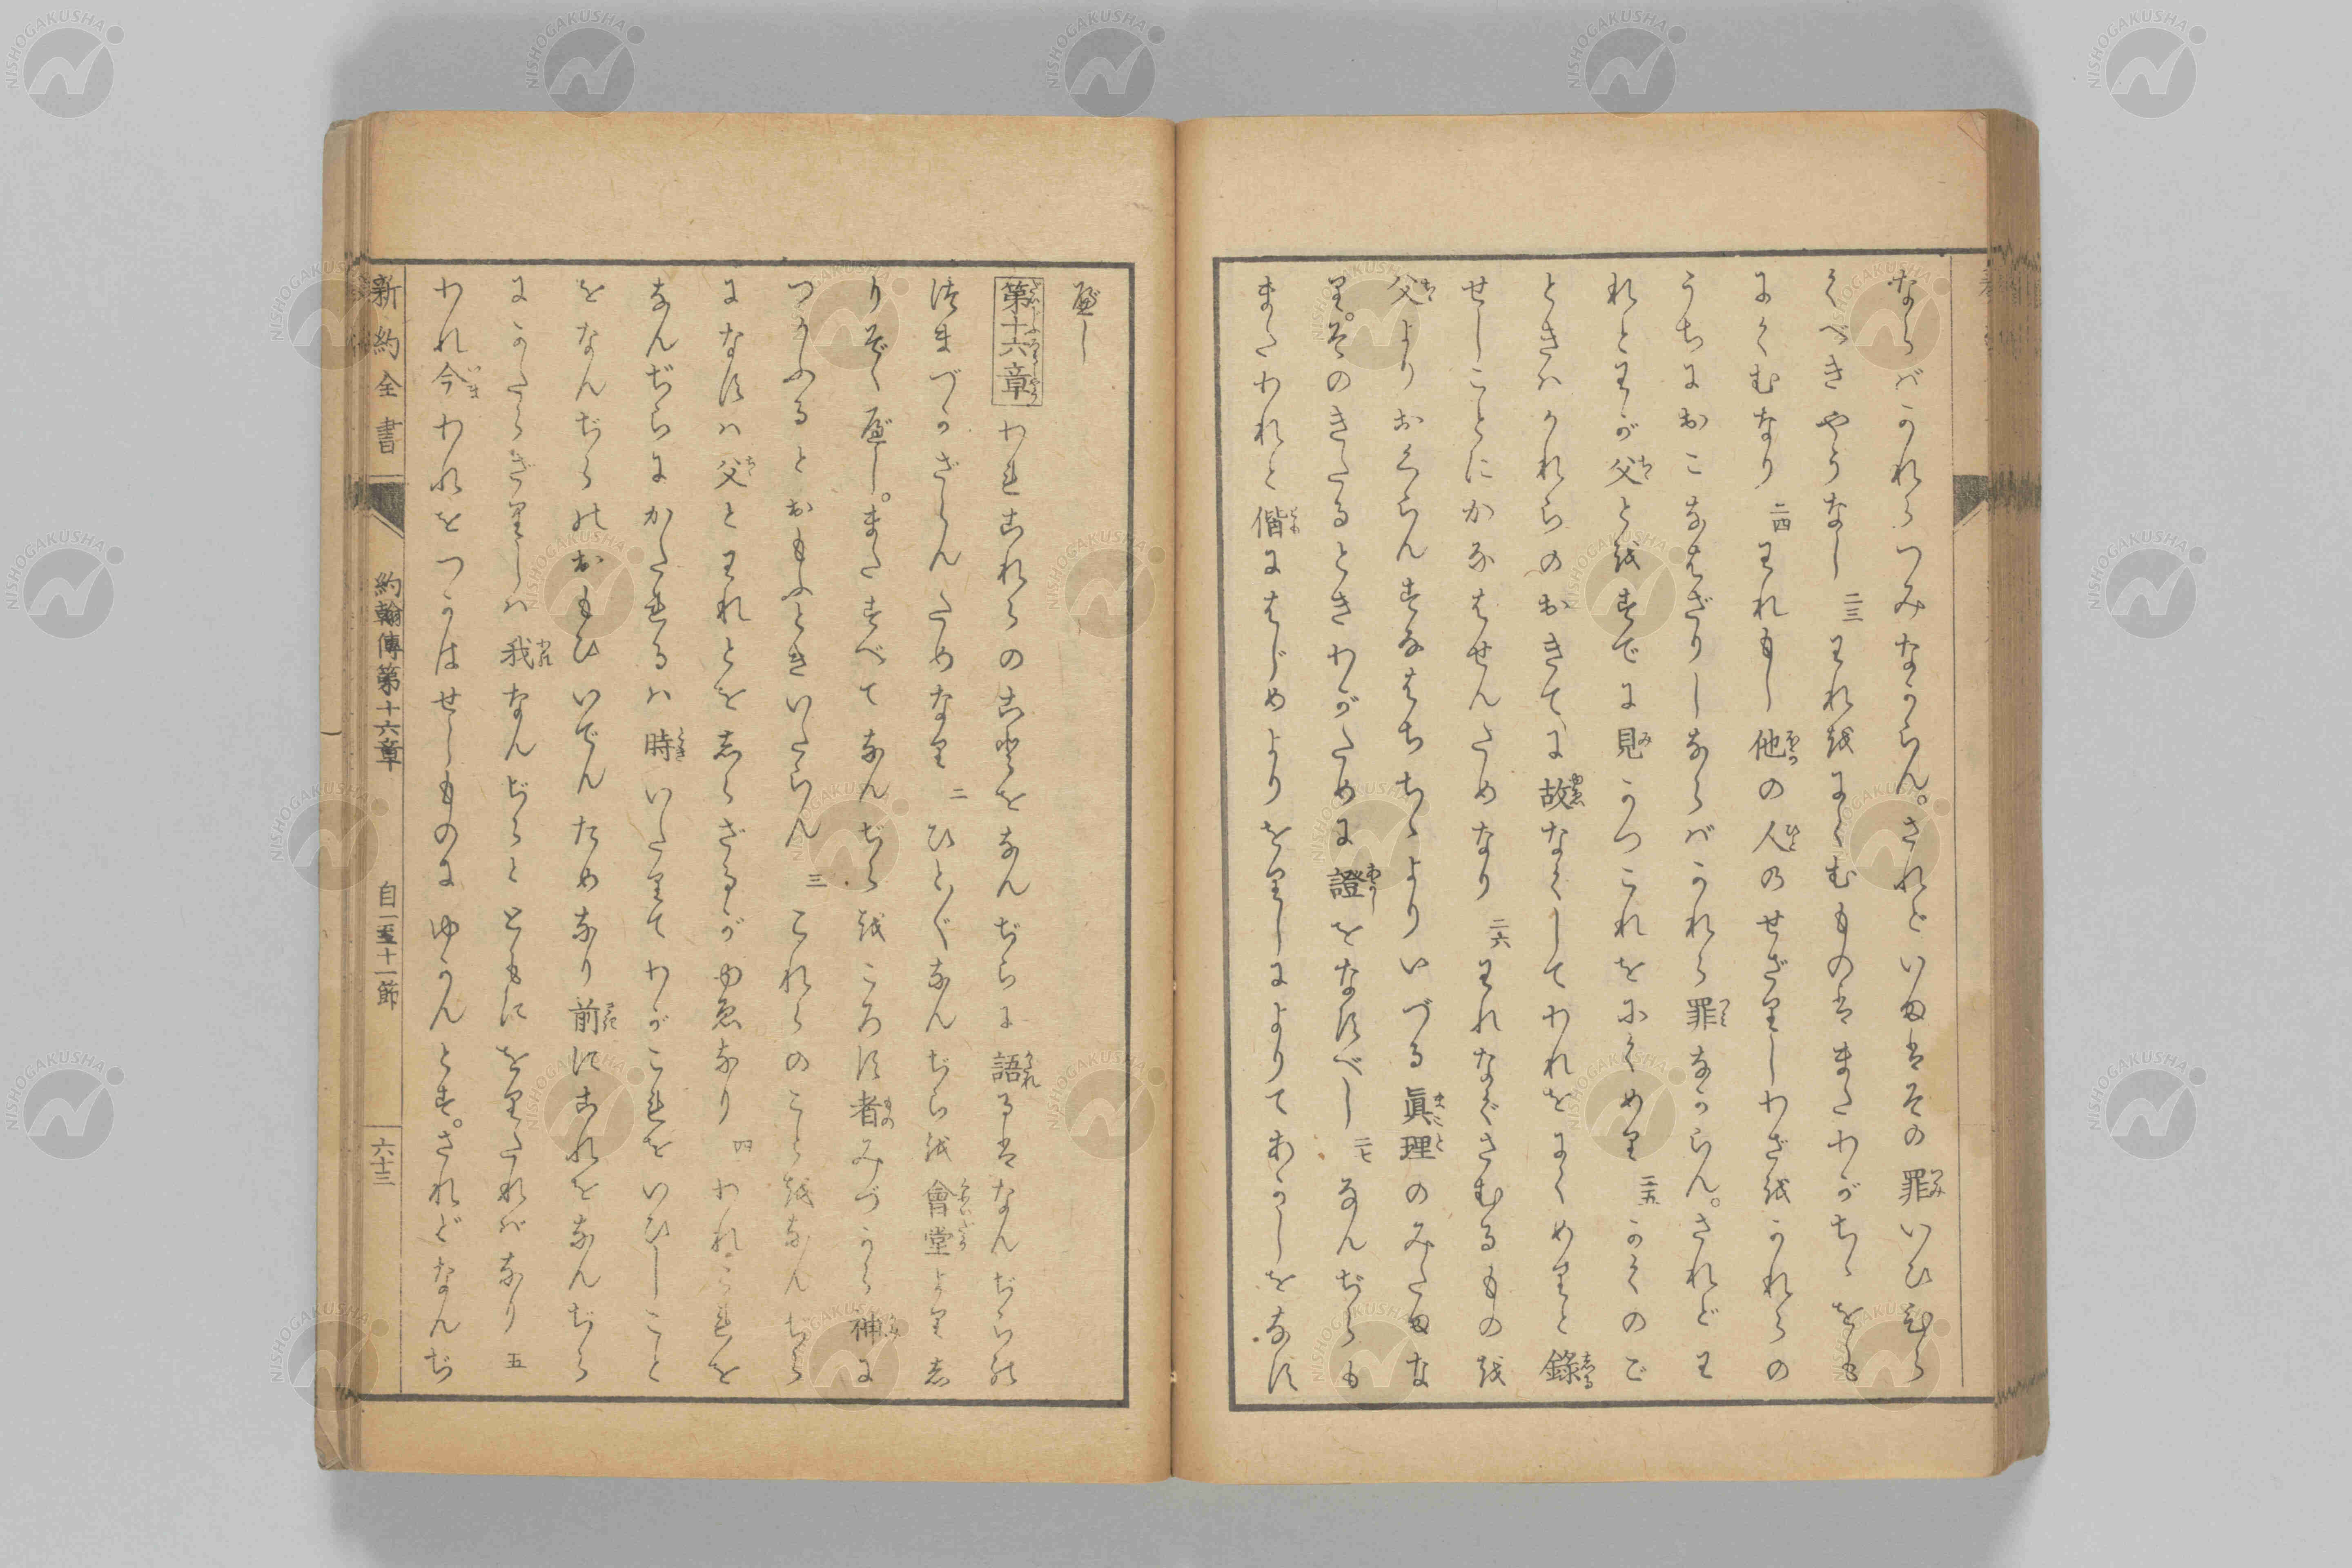 ならバかれらつみなからん。されどいまはその罪いひひら
くべきやうなし 二三 われをにくむものはまたわがちゝをも
にくむなり 二四 われもし他の人のせざりしわざをかれらの
うちにおこなはざりしならバかれら罪なからん。されどわ
れとわが父とをすでに見かつこれをにくめり 二五 かくのご
ときハかれらのおきてに故なくしてわれをにくめりと錄
せしことにかなはせんためなり 二六 われなぐさむるものを
父よりおくらんすなはちちゝよりいづる眞理のみたまな
り。そのきたるときわがために證をなすべし 二七 なんぢらも
またわれと偕にはじめよりをりしによりてあかしをなす
べし
第十六章 われこれらのことをなんぢらに語るはなんぢらの
つまづかざらんためなり 二 ひと〴〵なんぢらを會堂よりし
りぞく べし。またすべてなんぢらをころす者みづから神に
つかふるとおもふときいたらん 三 これらのことをなんぢら
になすハ父とわれとをしらざるがゆゑなり 四 われこれを
なんぢらにかたれるハ時いたりてわがこれをいひしこと
をなんぢらのおもひいでんためなり前にこれをなんぢら
にかたらざりしハ我なんぢらとともにをりたれバなり 五
われ今われをつかはせしものにゆかんとす。されどなんぢ
新約全書 約翰傳第十六章 自一至十一節 六十三